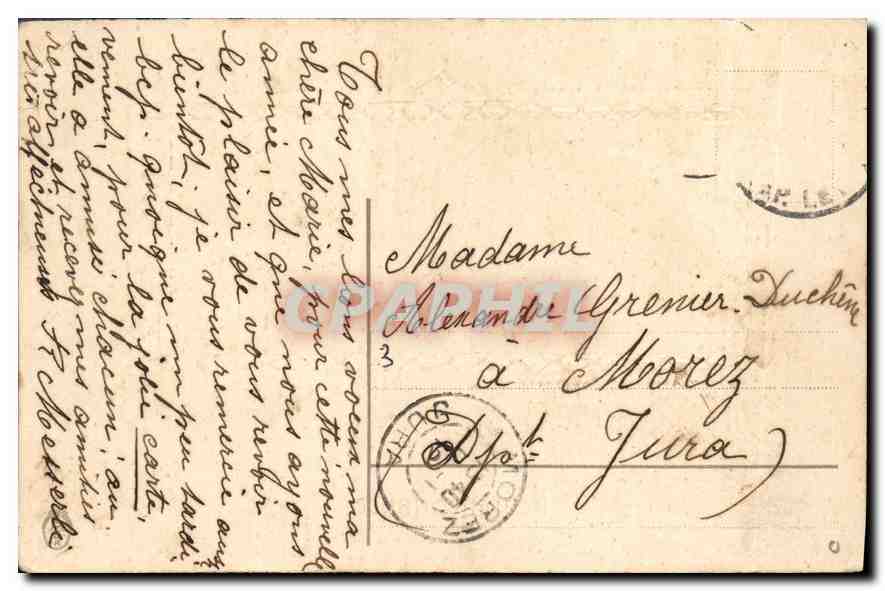 Tous mes bons voeux ma
chère Marie, pour cette nouvelle
année, et que nous ayons
le plaisir de vous revoir
bientôt, je vous remercie aussi
bcp. quoique un peu tardi
vement, pour la jolie carte,
elle a amusé chacun, au
revoir et recevez mes amitiés
très affectueuses
Messerli
Madame
Alexandre Grenier-Duchêne
à Morez
(Dpt Jura)
MOREZ
JURA
CPARPHIL
3